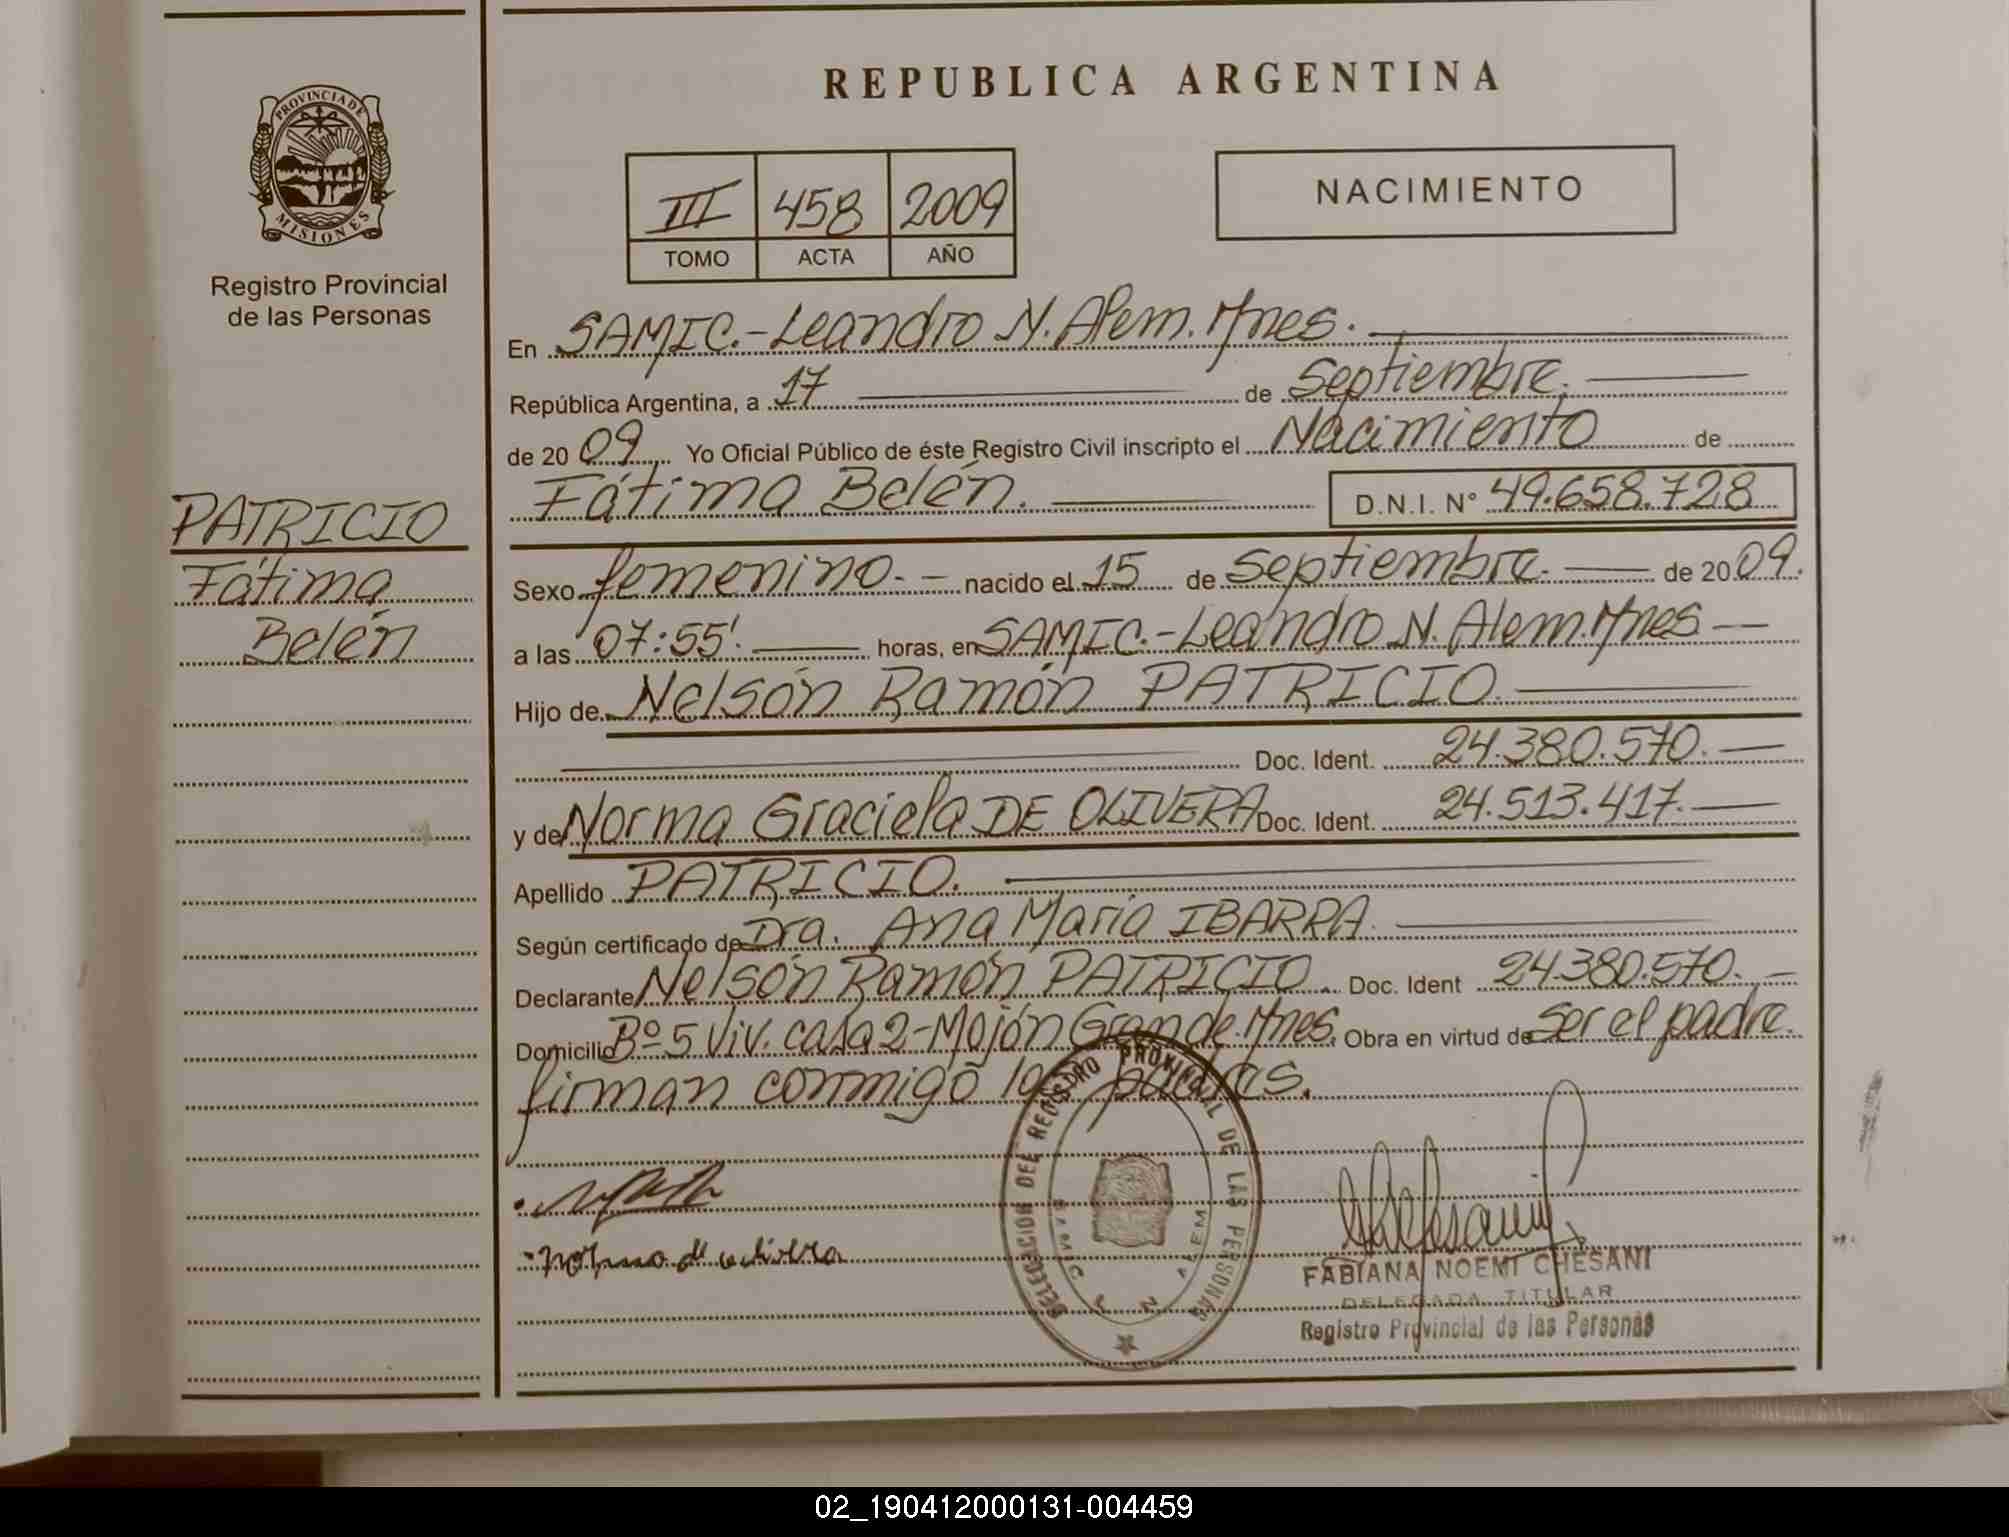 REPUBLICA ARGENTINA
PROVINCIA DE
MISIONES
Registro Provincial
de las Personas
III 458 2009
TOMO ACTA AÑO
NACIMIENTO
En SAMIC.-Leandro N. Alem. Mnes.
República Argentina, a 17 de Septiembre.
de 2009 Yo Oficial Público de éste Registro Civil inscripto el Nacimiento de
Fátima Belén. D.N.I. Nº 49.658.728
PATRICIO
Fátima
Belén
Sexo femenino. - nacido el 15 de Septiembre. de 2009.
a las 07:55'. horas, en SAMIC.-Leandro N. Alem. Mnes
Hijo de Nelsón Ramón PATRICIO.
Doc. Ident. 24.380.570.
y de Norma Graciela DE OLIVERA Doc. Ident. 24.513.417.
Apellido PATRICIO.
Según certificado de Dra. Ana Maria IBARRA.
Declarante Nelsón Ramón PATRICIO. Doc. Ident 24.380.570. -
Domicilio Bº 5 Viv. casa 2-Mojón Grande. Mnes. Obra en virtud de Ser el padre.
firman conmigo los padres.
norma de olivera
DELEGACION DEL REGISTRO PROVINCIAL DE LAS PERSONAS
L. N. ALEM
FABIANA NOEMI CHESANI
DELEGADA TITULAR
Registro Provincial de las Personas
02_190412000131-004459